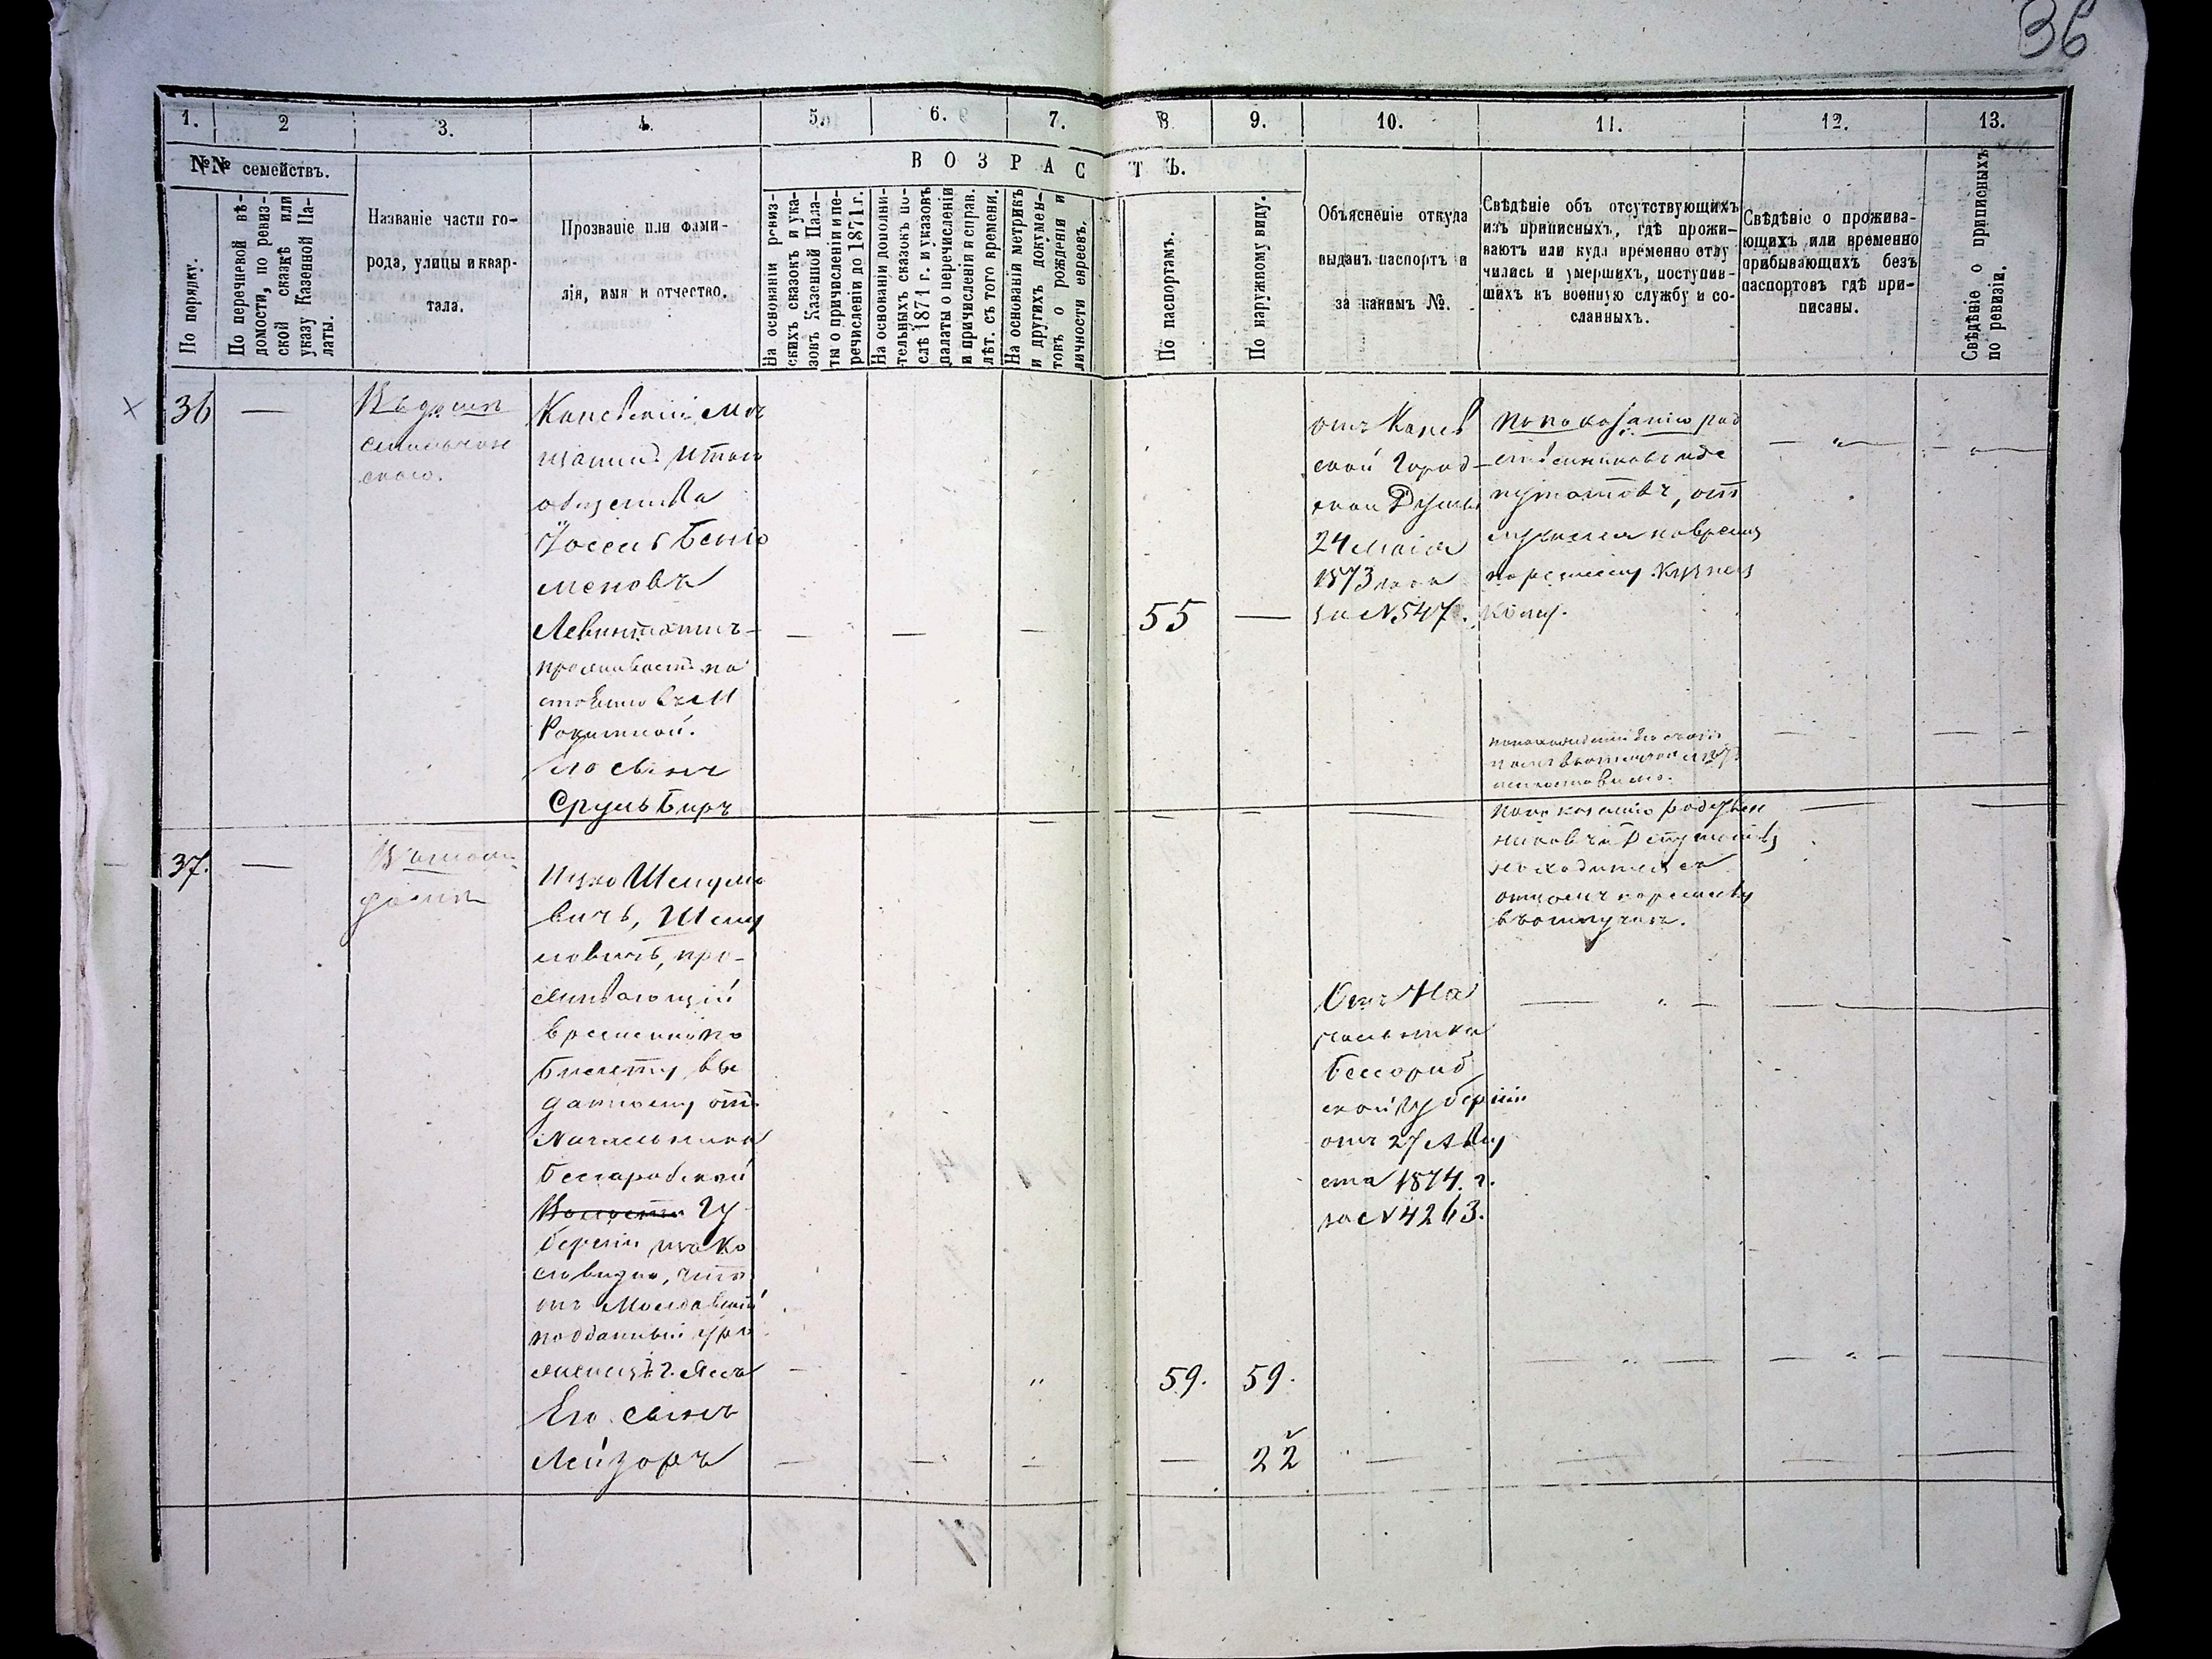 36
1. 2 3. 4. 5. 6. 7. 8. 9. 10. 11. 12. 13.
№№ семействъ.
ВОЗРАСТЪ.
По порядку.
По перечневой вѣ-
домости, по ревиз-
ской сказкѣ или
указу Казенной Па-
латы.
Названіе части го-
рода, улицы и квар-
тала.
Прозваніе или фами-
лія, имя и отчество.
На основаніи ревиз-
скихъ сказокъ и ука-
зовъ Казенной Пала-
ты о причисленіи и пе-
речисленіи до 1871 г.
На основаніи дополни-
тельныхъ сказокъ по-
слѣ 1871 г. и указовъ
палаты о перечисленіи
и причисленіи и справ.
лѣт. съ того времени.
На основаніи метрикъ
и другихъ докумен-
товъ о рожденіи и
личности евреевъ.
По паспортамъ.
По наружному виду.
Объясненіе откуда
выданъ паспортъ и
за какимъ №.
Свѣдѣніе объ отсутствующихъ
изъ приписныхъ, гдѣ прожи-
ваютъ или куда временно отлу
чились и умершихъ, поступив-
шихъ въ военную службу и со-
сланныхъ.
Свѣдѣніе о прожива-
ющихъ или временно
прибывающихъ безъ
паспортовъ гдѣ при-
писаны.
Свѣдѣніе о приписныхъ
по ревизіи.
36 —
Каневскій мѣ
щанинъ
общества
Іосель Бенiо
меновъ
Левинтантъ
проживаетъ по
стоянно въ М
Рокитной.
Его сынъ
Сруль Беръ
55 —
отъ Канев
ской Город-
ской Думы
24 Маія
1873 года
за № 547.
по показанію род
ственниковъ и де
путатовъ, от
лучился
по показанію родствен
никовъ и Депутатовъ
находится съ
отцомъ
въ отлучкѣ.
37. —
Ицко Шмуле
вичъ, Шму
левичъ, про-
живающій
временно по
билету вы
данному отъ
Начальника
Бессарабской
Гу
берніи
видно, что
онъ Молдавскій
подданный уро
женецъ г. Яссъ
Его сынъ
Лейзоръ
59. 59.
22
Отъ На
чальника
Бессараб
ской Губерніи
отъ 27 Авгу
ста 1874. г.
за № 4263.